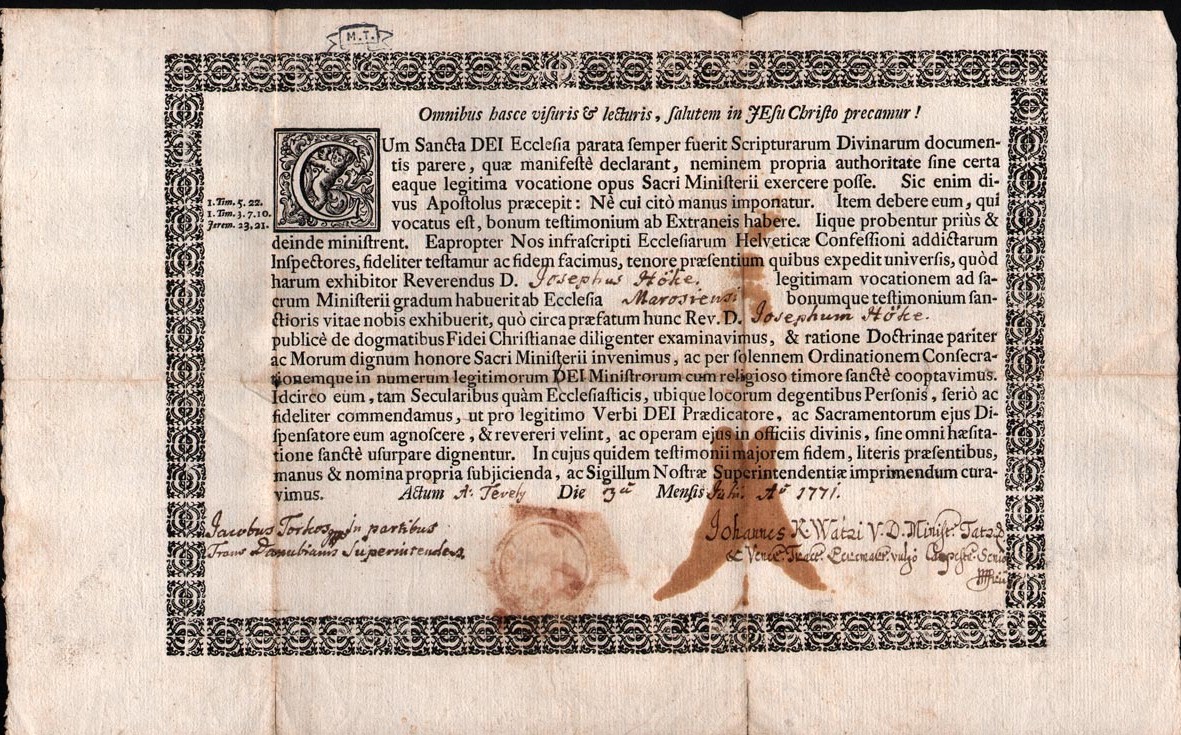 M. T.
Omnibus hasce visuris & lecturis, salutem in JEsu Christo precamur!
CUm Sancta DEI Ecclesia parata semper fuerit Scripturarum Divinarum documen-
tis parere, quæ manifestè declarant, neminem propria authoritate sine certa
eaque legitima vocatione opus Sacri Ministerii exercere posse. Sic enim di-
vus Apostolus præcepit: Nè cui citò manus imponatur. Item debere eum, qui
vocatus est, bonum testimonium ab Extraneis habere. Iique probentur priùs &
1. Tim. 5. 22.
1. Tim. 3. 7. 10.
Jerem. 23. 21.
deinde ministrent. Eapropter Nos infrascripti Ecclesiarum Helveticæ Confessioni addictarum
Inspectores, fideliter testamur ac fidem facimus, tenore præsentium quibus expedit universis, quòd
harum exhibitor Reverendus D. Josephus Höke. legitimam vocationem ad sa-
crum Ministerii gradum habuerit ab Ecclesia Marosiensi bonumque testimonium san-
ctioris vitae nobis exhibuerit, quò circa præfatum hunc Rev. D. Josephum Höke.
publicè de dogmatibus Fidei Christianae diligenter examinavimus, & ratione Doctrinae pariter
ac Morum dignum honore Sacri Ministerii invenimus, ac per solennem Ordinationem Consecra-
tionemque in numerum legitimorum DEI Ministrorum cum religioso timore sanctè cooptavimus.
Idcirco eum, tam Secularibus quàm Ecclesiasticis, ubique locorum degentibus Personis, seriò ac
fideliter commendamus, ut pro legitimo Verbi DEI Prædicatore, ac Sacramentorum ejus Di-
spensatore eum agnoscere, & revereri velint, ac operam ejus in officiis divinis, sine omni hæsita-
tione sanctè usurpare dignentur. In cujus quidem testimonii majorem fidem, literis præsentibus,
manus & nomina propria subjicienda, ac Sigillum Nostræ Superintendentiæ imprimendum cura-
vimus. Actum A. Tevely Die 3a Mensis Julii Ao 1771.
Jacobus Torkos in partibus
Trans Danubianis Superintendens
Johannes K Watzi V. D. Minist.
& Vener. Tract. vulgò Senior